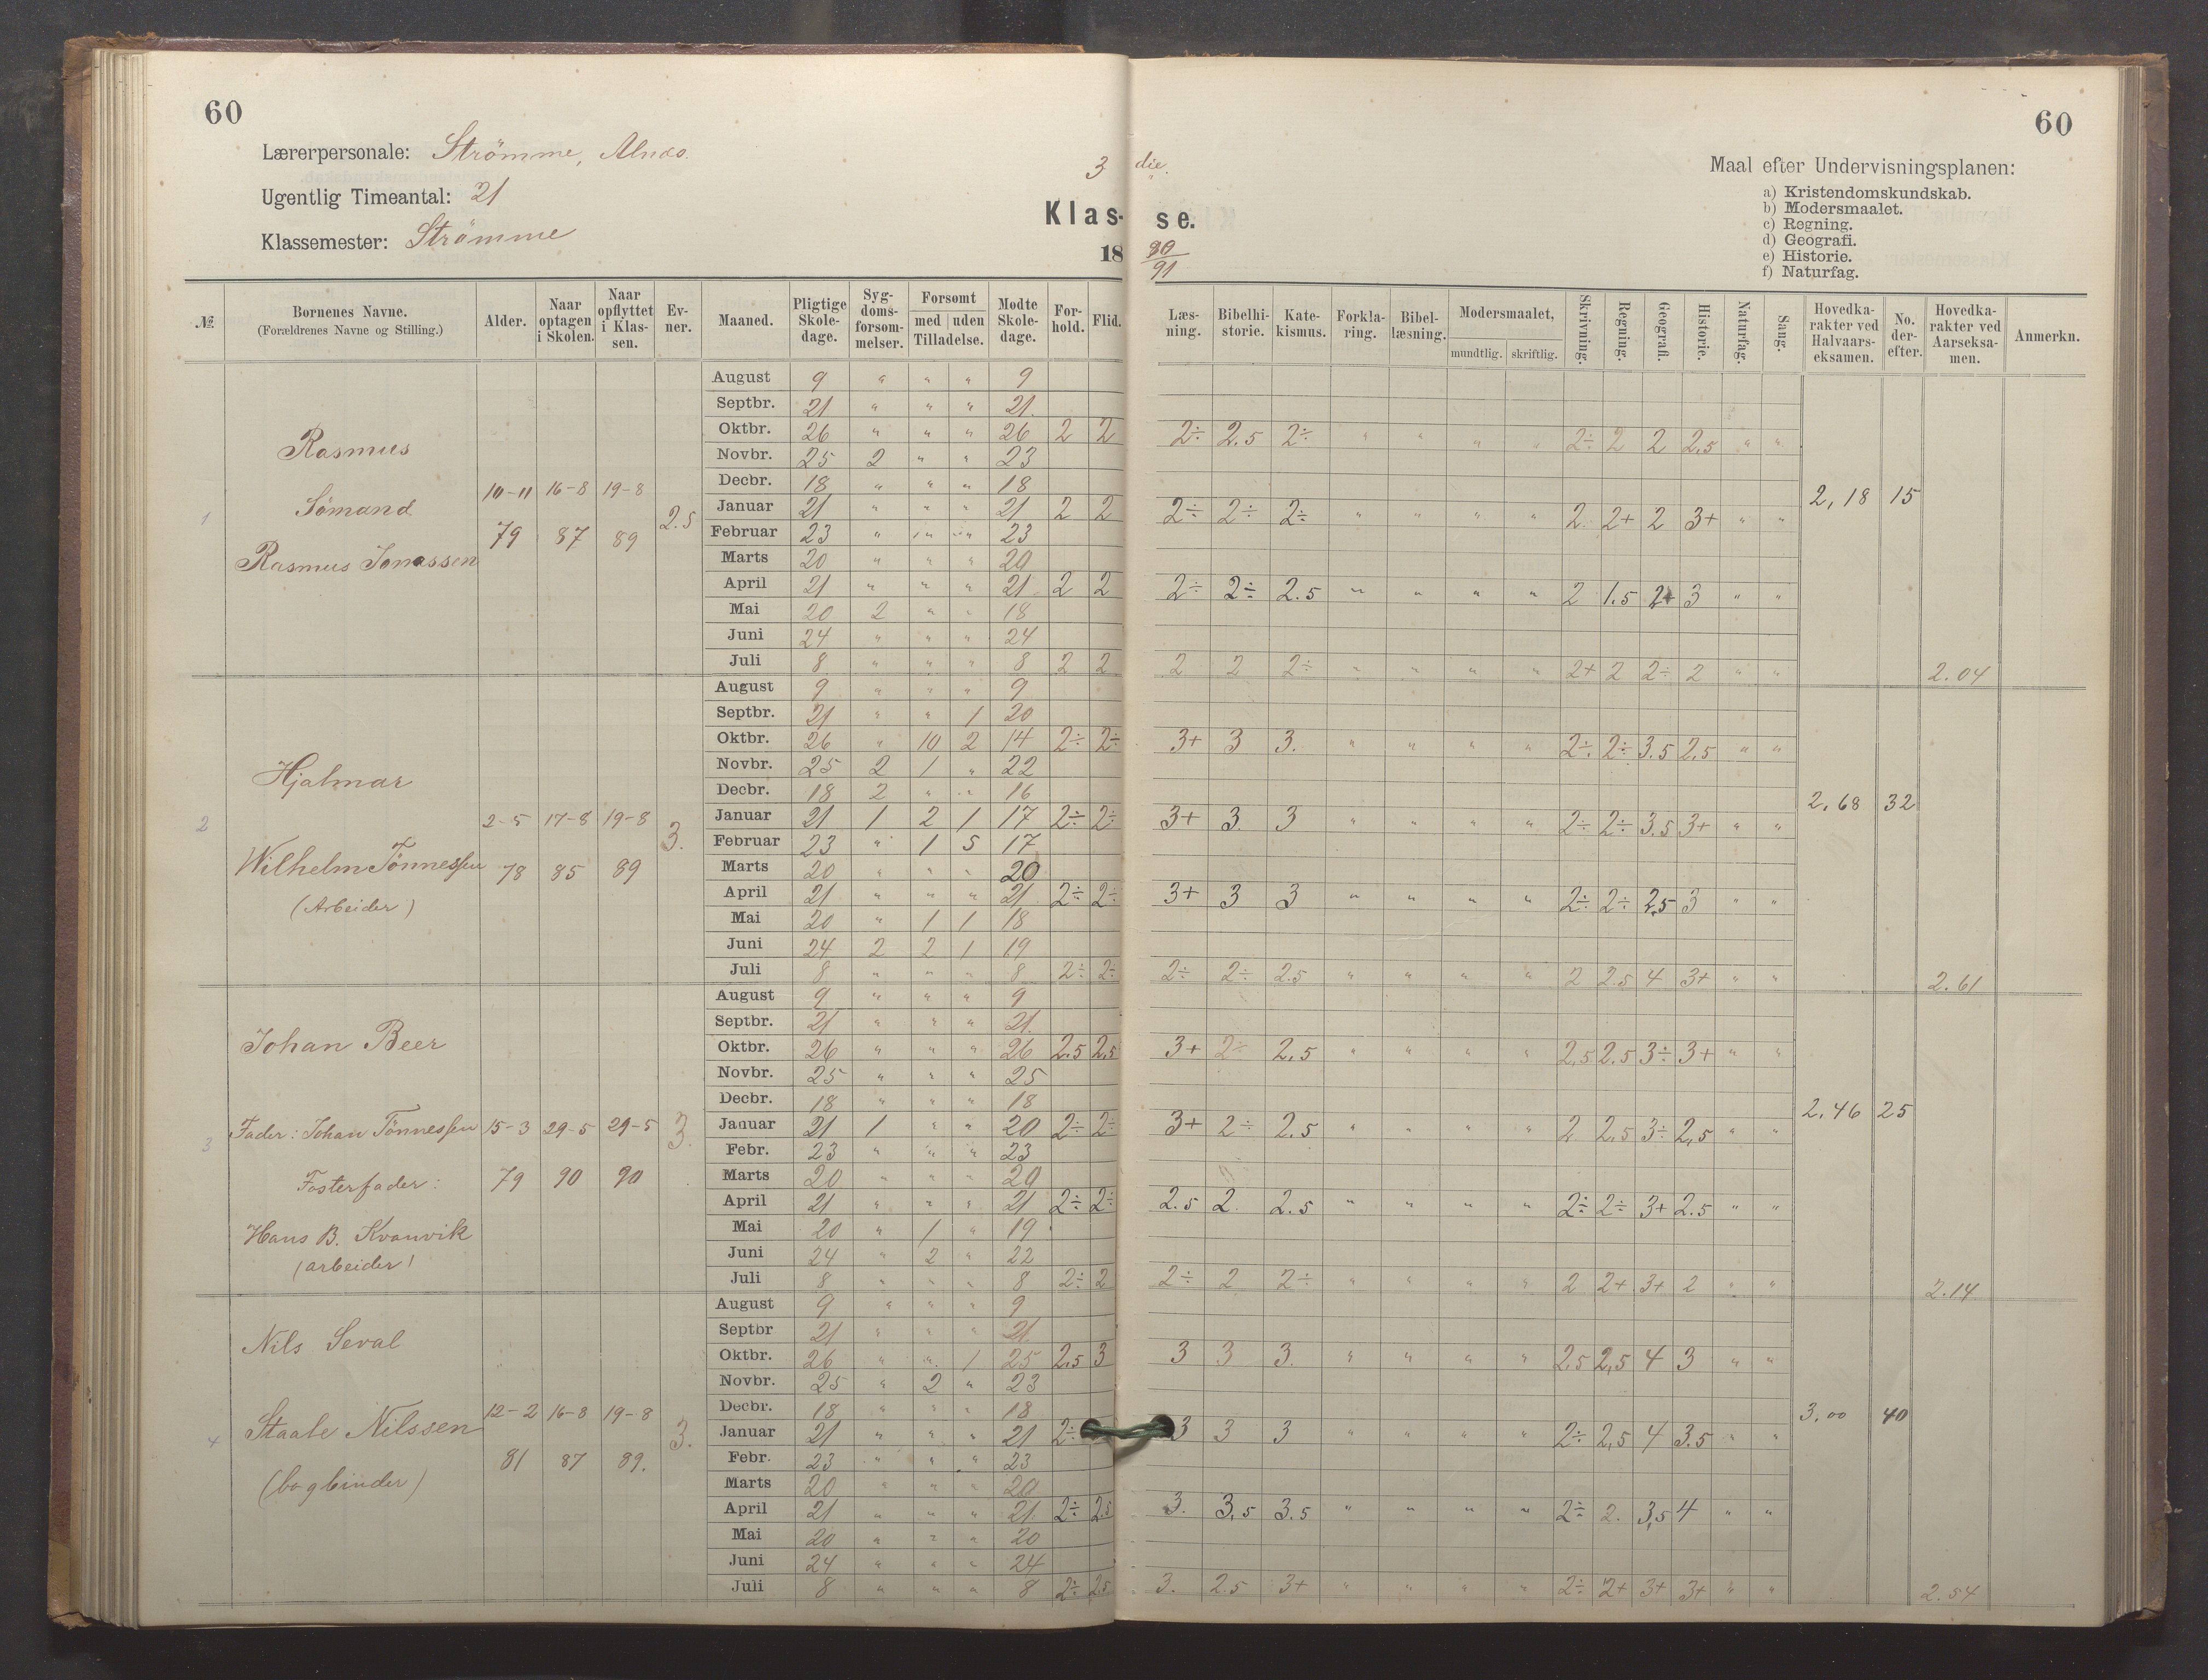 60
60
Lærerpersonale: Strömme,
Ugentlig Timeantal: 21
Klassemester: Strömme
3 die.
Klas- se.
18 90/91
Maal efter Undervisningsplanen:
a) Kristendomskundskab.
b) Modersmaalet.
c) Regning.
d) Geografi.
e) Historie.
f) Naturfag.
№ Børnenes Navne. (Forældrenes Navne og Stilling.) Alder. Naar optagen i Skolen. Naar opflyttet i Klassen. Evner. Maaned. Pligtige Skoledage. Sygdomsforsømmelser. Forsømt med uden Tilladelse. Mødte Skoledage. Forhold. Flid. Læsning. Bibelhistorie. Katekismus. Forklaring. Bibellæsning. Modersmaalet, mundtlig. skriftlig. Skrivning. Regning. Geografi. Historie. Naturfag. Sang. Hovedkarakter ved Halvaarseksamen. No. derefter. Hovedkarakter ved Aarseksamen. Anmerkn.
1 Rasmus
Sömand
Rasmus Jonassen
10-11 79 16-8 87 19-8 89 2.5
August 9 " " " 9
Septbr. 21 " " " 21.
Oktbr. 26 " " " 26 2 2 2÷ 2.5 2÷ " " " " 2÷ 2 2 2,5 " "
Novbr. 25 2 " " 23
Decbr. 18 " " " 18
Januar 21 " " " 21 2 2 2÷ 2÷ 2÷ " " " " 2. 2+ 2 3+ " "
Februar 23 " " " 23
Marts 20 " " " 20
April 21 " " " 21 2 2 2÷ 2÷ 2.5 " " " " 2 1.5 2+ 3 " "
Mai 20 2 " " 18
Juni 24 " " " 24
Juli 8 " " " 8 2 2 2 2 2÷ " " " " 2+ 2 2÷ 2 " "
2,18 15 2.04
2 Hjalmar
Wilhelm Tönnessen
(Arbeider)
2-5 78 17-8 85 19-8 89 3.
August 9 " " " 9
Septbr. 21 " " 1 20
Oktbr. 26 " 10 2 14 2÷ 2÷ 3+ 3 3. " " " " 2÷ 2÷ 3.5 2,5 " "
Novbr. 25 2 1 " 22
Decbr. 18 2 " " 16
Januar 21 1 2 1 17 2÷ 2÷ 3+ 3. 3 " " " " 2÷ 2÷ 3.5 3+ " "
Februar 23 " 1 5 17
Marts 20 " " " 20
April 21 " " " 21 2÷ 2÷ 3+ 3 3 " " " " 2÷ 2÷ 2,5 3 " "
Mai 20 " 1 1 18
Juni 24 2 2 1 19
Juli 8 " " " 8 2÷ 2÷ 2÷ 2÷ 2.5 " " " " 2 2.5 4 3+ " "
2,68 32 2.61
3 Johan Beer
Fader: Johan Tönnessen
Fosterfader:
Hans B. Kvanvik
(arbeider)
15-3 79 29-5 90 29-5 90 3.
August 9 " " " 9
Septbr. 21 " " " 21.
Oktbr. 26 " " " 26 2.5 2,5 3+ 2÷ 2,5 " " " " 2,5 2.5 3÷ 3+ " "
Novbr. 25 " " " 25
Decbr. 18 " " " 18
Januar 21 1 " " 20 2÷ 2÷ 3+ 2÷ 2.5 " " " " 2 2,5 3÷ 2,5 " "
Febr. 23 " " " 23
Marts 20 " " " 20
April 21 " " " 21 2÷ 2÷ 2.5 2. 2.5 " " " " 2÷ 2÷ 3+ 2.5 " "
Mai 20 " 1 " 19
Juni 24 " 2 " 22
Juli 8 " " " 8 2÷ 2 2÷ 2 2÷ " " " " 2 2+ 3+ 2 " "
2,46 25 2.14
4 Nils Seval
Staale Nilssen
(bogbinder)
12-2 81 16-8 87 19-8 89. 3.
August 9 " " " 9
Septbr 21 " " " 21.
Oktbr. 26 " " 1 25 2,5 3 3 3 3. " " " " 2,5 2,5 4 3 " "
Novbr. 25 " 2 " 23
Decbr. 18 " " " 18
Januar 21 " " " 21 2÷ 3 3 3 " " " " 2÷ 2,5 4 3.5 " "
Febr. 23 " " " 23
Marts 20 " " " 20
April 21 " " " 21. 2÷ 2.5 3. 3,5 3.5 " " " " 2÷ 2. 3,5 4 " "
Mai 20 " " " 20
Juni 24 " " " 24
Juli 8 " " " 8 2÷ 2.5 3. 2.5 3+ " " " " 2÷ 2+ 3+ 3+ " "
3,00 40 2.54